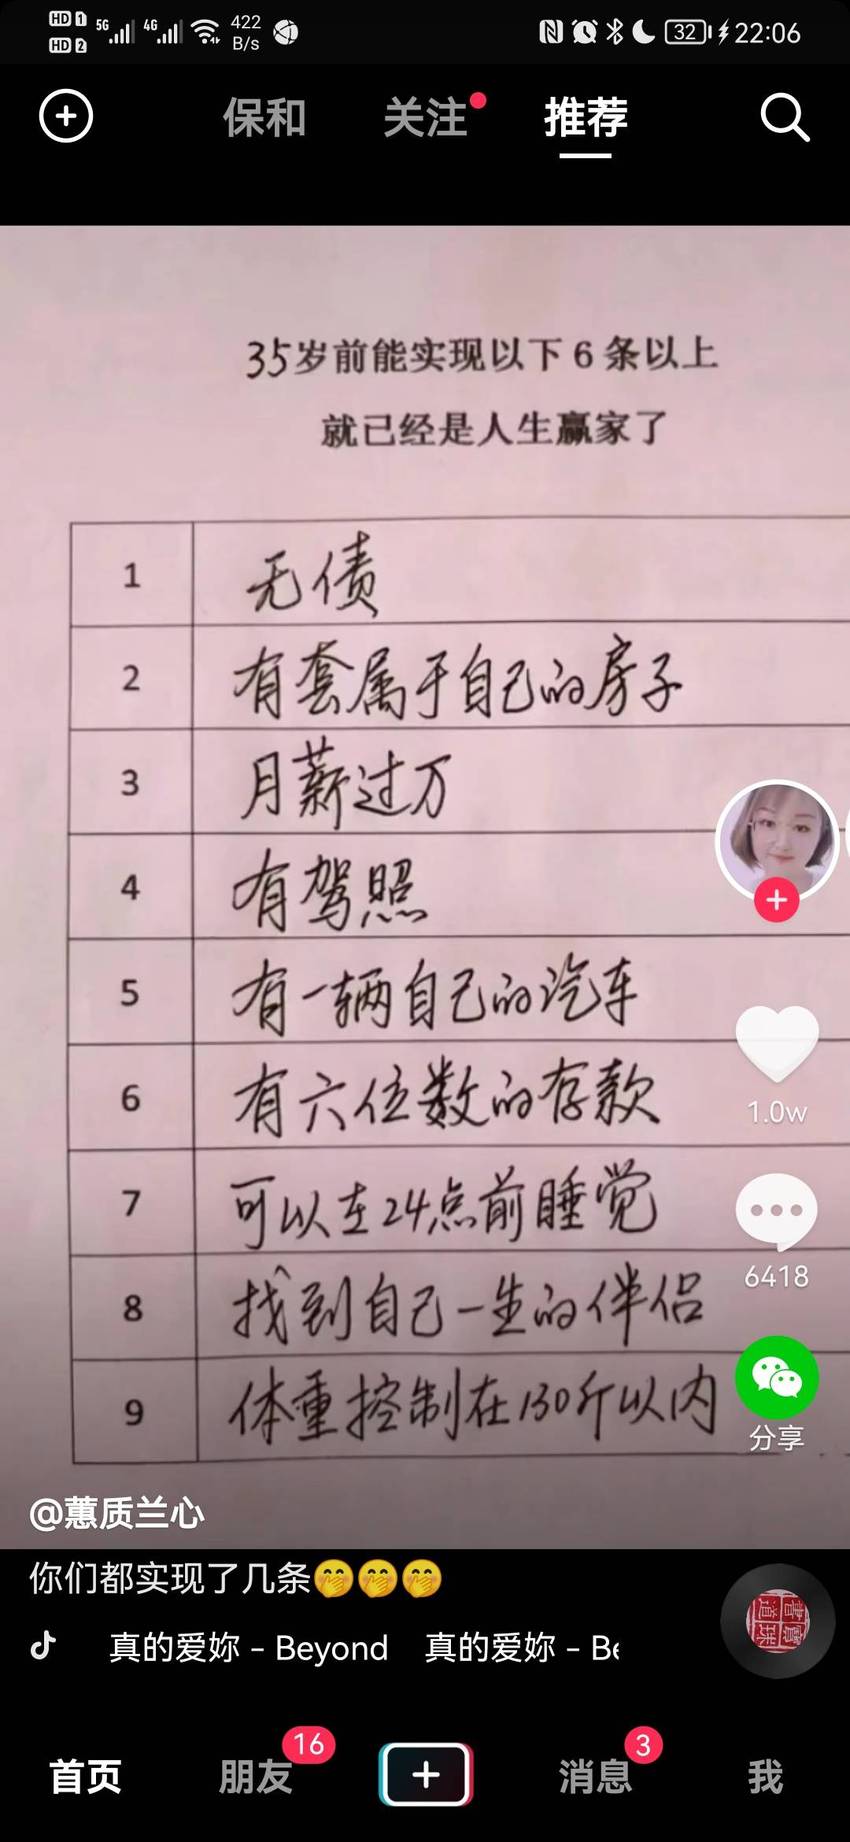 HD 1 5G 4G 422 32 22:06
HD 2 B/s
保和 关注 推荐
35岁前能实现以下6条以上
就已经是人生赢家了
1 无债
2 有套属于自己的房子
3 月薪过万
4 有驾照
5 有一辆自己的汽车
6 有六位数的存款
7 可以在24点前睡觉
8 找到自己一生的伴侣
9 体重控制在130斤以内
1.0w
6418
分享
@蕙质兰心
你们都实现了几条🤭🤭🤭
真的爱妳 - Beyond 真的爱妳 - Be
首页 朋友 16 消息 3 我